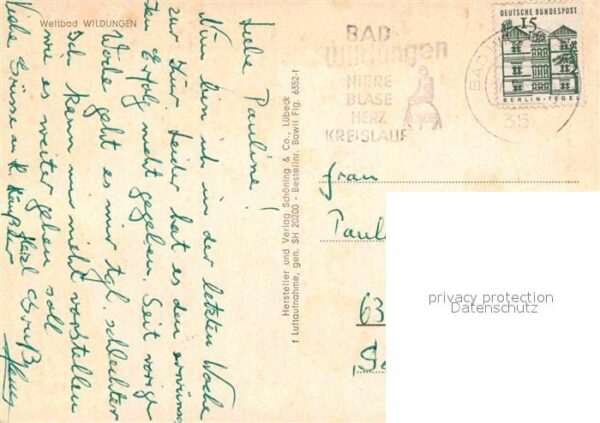 Weltbad WILDUNGEN
Liebe Pauline!
Nun bin ich in der letzten Woche
zur Kur. Leider hat es den erwünsch
ten Erfolg nicht gegeben. Seit vorige
Woche geht es mir tgl. schlechter
Ich kann mir nicht vorstellen
wie es weiter gehen soll
Viele Grüsse u.
Hersteller und Verlag Schöning & Co., Lübeck
† Luftaufnahme, gen. SH 20200 - Bestellnr. Bawil Flg. 6352-f
BAD
Wildungen
NIERE
BLASE
HERZ
KREISLAUF
DEUTSCHE BUNDESPOST
15
BERLIN-TEGEL
BAD
Frau
Paul
63
privacy protection
Datenschutz